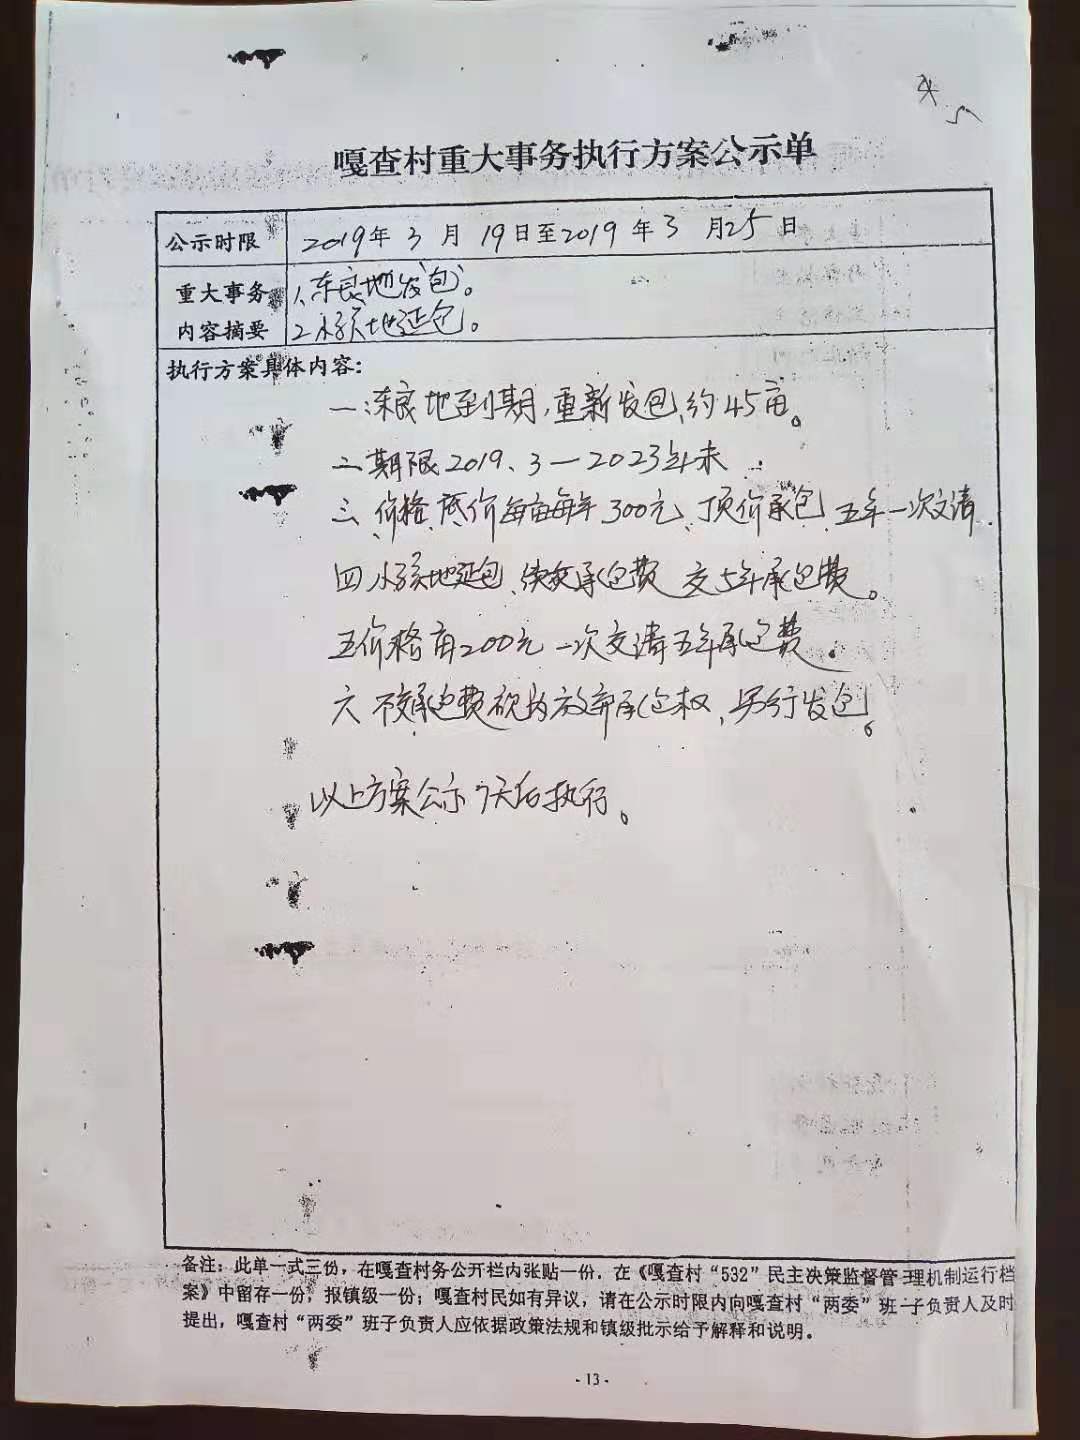 嘎查村重大事务执行方案公示单
公示时限 2019年3月19日至2019年3月25日
重大事务 1、东良地发包。
内容摘要 2 地延包。
执行方案具体内容：
一：东良地到期，重新发包、约45亩。
二 期限2019、3—2023年末
三、价格、底价每亩每年300元、顶价承包 五年一次交清
四 地延包、续交承包费 交5年承包费。
五价格亩200元 一次交清五年承包费.
六 不交承包费视为放弃承包权，另行发包。
以上方案公示7天后执行。
备注：此单一式三份，在嘎查村务公开栏内张贴一份，在《嘎查村“532”民主决策监督管理机制运行档
案》中留存一份，报镇级一份；嘎查村民如有异议，请在公示时限内向嘎查村“两委”班子负责人及时
提出，嘎查村“两委”班子负责人应依据政策法规和镇级批示给予解释和说明。
- 13 -